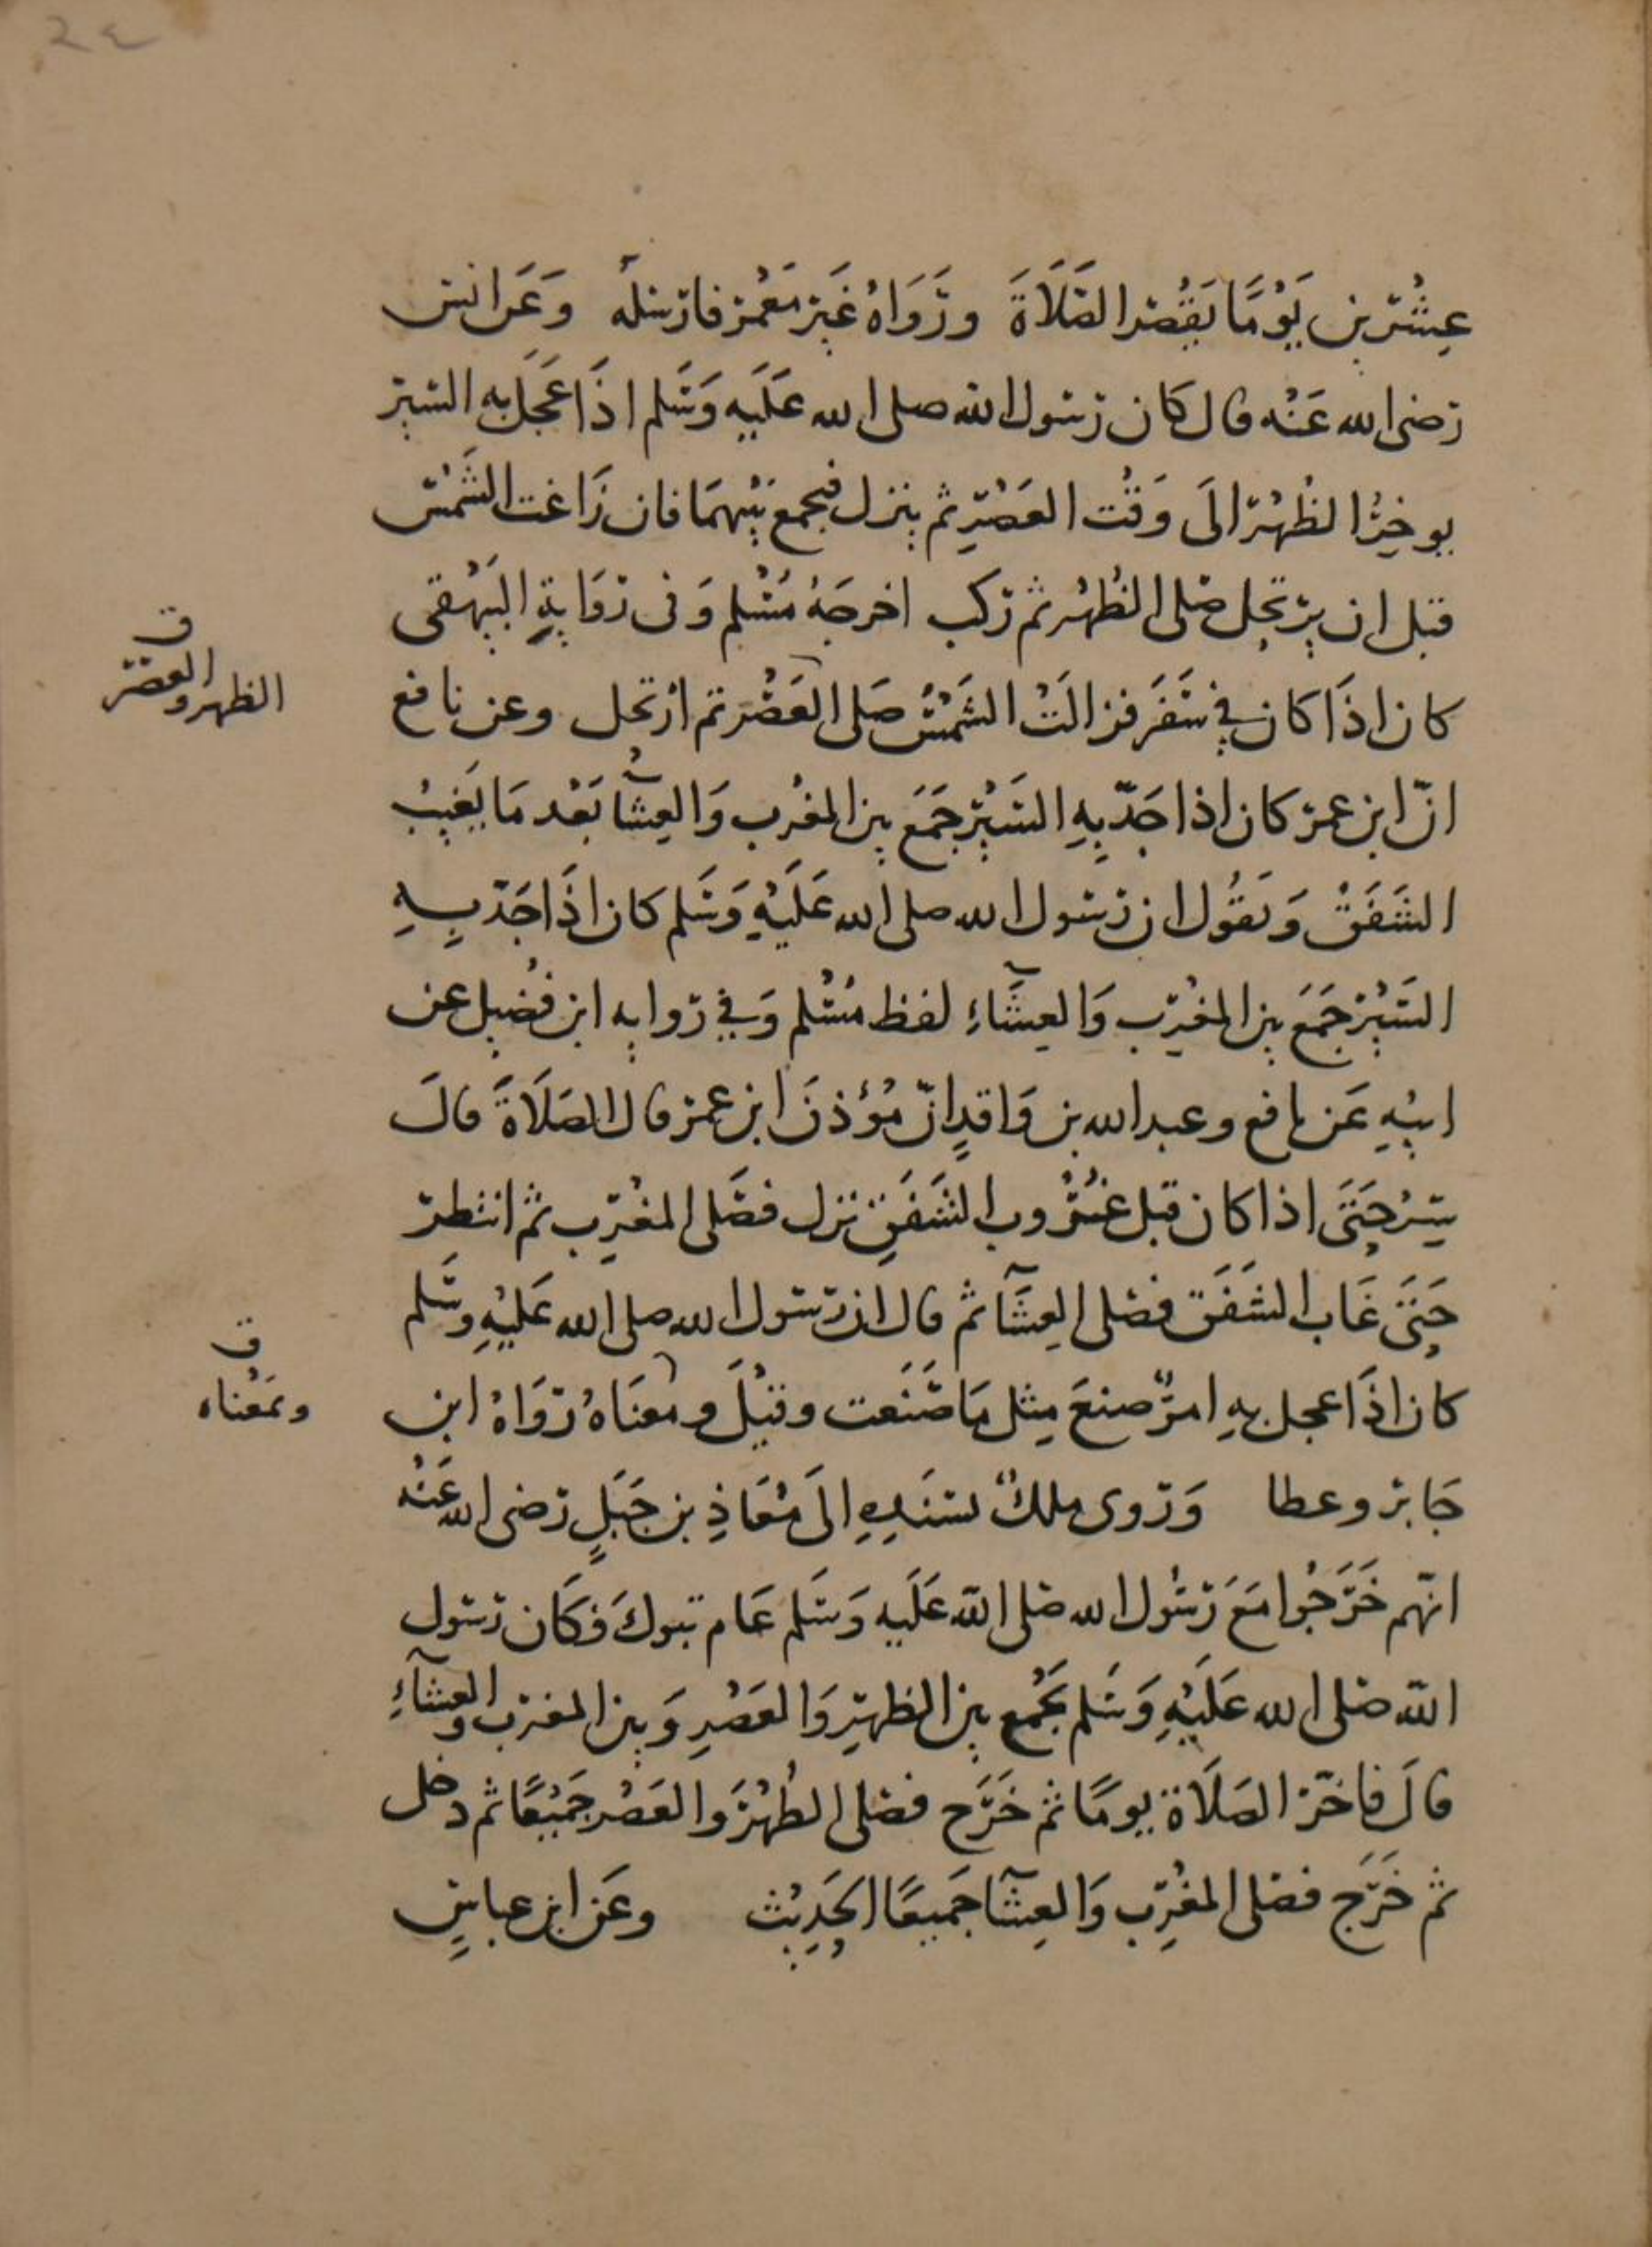 ٢٤
عِشْرين يَوْمًا يَقْصُر الصَّلَاةَ ورَوَاهُ غَير مَعْمر فارسَلَه وَعَن انس
رضى الله عَنْه قال كَان رَسُول الله صلى الله عَلَيه وَسَلم اذَا عَجَل به السير
يوخِرُ الظُهْر الَى وَقْت العَصْرِ ثم ينزل فيجمع بَيْنهمَا فان زَاغت الشَمْس
قبل ان يرتحِل صَلى الظُهْر ثم رَكب اخرجَهُ مُسْلم وَفى رَوَايةِ البَيْهقى
كان اذَا كان في سَفَر فزالَتْ الشَمْسُ صَلى العَصْر ثم ارتحل وعن نافع
الظهر والعصر ق
انّ ابن عمر كان اذا جَدّ بِهِ السَيْرُ جَمَعَ بين المغْرب وَالعِشآ بَعْد مَا يَغيبُ
الشَفَقْ وَيَقُول ان رَسُول الله صلى الله عَلَيْهِ وَسَلم كان اذَا جَدّ بِـهِ
السَيْر جَمَعَ بين المغْرِب وَالعِشَآءِ لفظ مُسْلم وَفي روايه ابن فُضيل عن
ابيْهِ عَن نافع وعبد الله بن وَاقدٍ انّ مُؤذنَ ابن عمر قال الصَلَاةَ قالَ
سِرْ حَتَى اذا كان قبل غُرُوب الشَفَقِ نزل فصَلى المغْرِب ثم انتظر
حَتَى غَاب الشَفَق فصلى العِشَآ ثم قال ان رسُول الله صلى الله عَليْهِ وسَلم
كان اذَا عجل بهِ امرٌ صنعَ مِثل مَا صَنَعت وقيْلَ ومعنَاهُ رَوَاهُ ابن
وبمَعْناه ق
جَابر وعطا وَرَوى ملكٌ بسَنَدِهِ الَى مُعَاذِ بن جَبَلٍ رضى الله عَنْه
انّهم خَرَجُوا مَعَ رَسُول الله صَلى الله عَلَيه وَسَلم عَام تبوكَ فكَان رسُول
الله صَلى الله عَلَيْهِ وَسَلم يَجْمع بين الظهرِ وَالعَصْرِ وَبين المغرب والعشآءِ
قالَ فاخّر الصَلَاة يومًا ثم خَرَج فصَلى الظُهْرَ والعَصْر جَميْعًا ثم دخل
ثم خَرَج فصَلى المغْرِب وَالعِشآ جَميعًا الحَدِيْث وعَن ابن عباسٍ